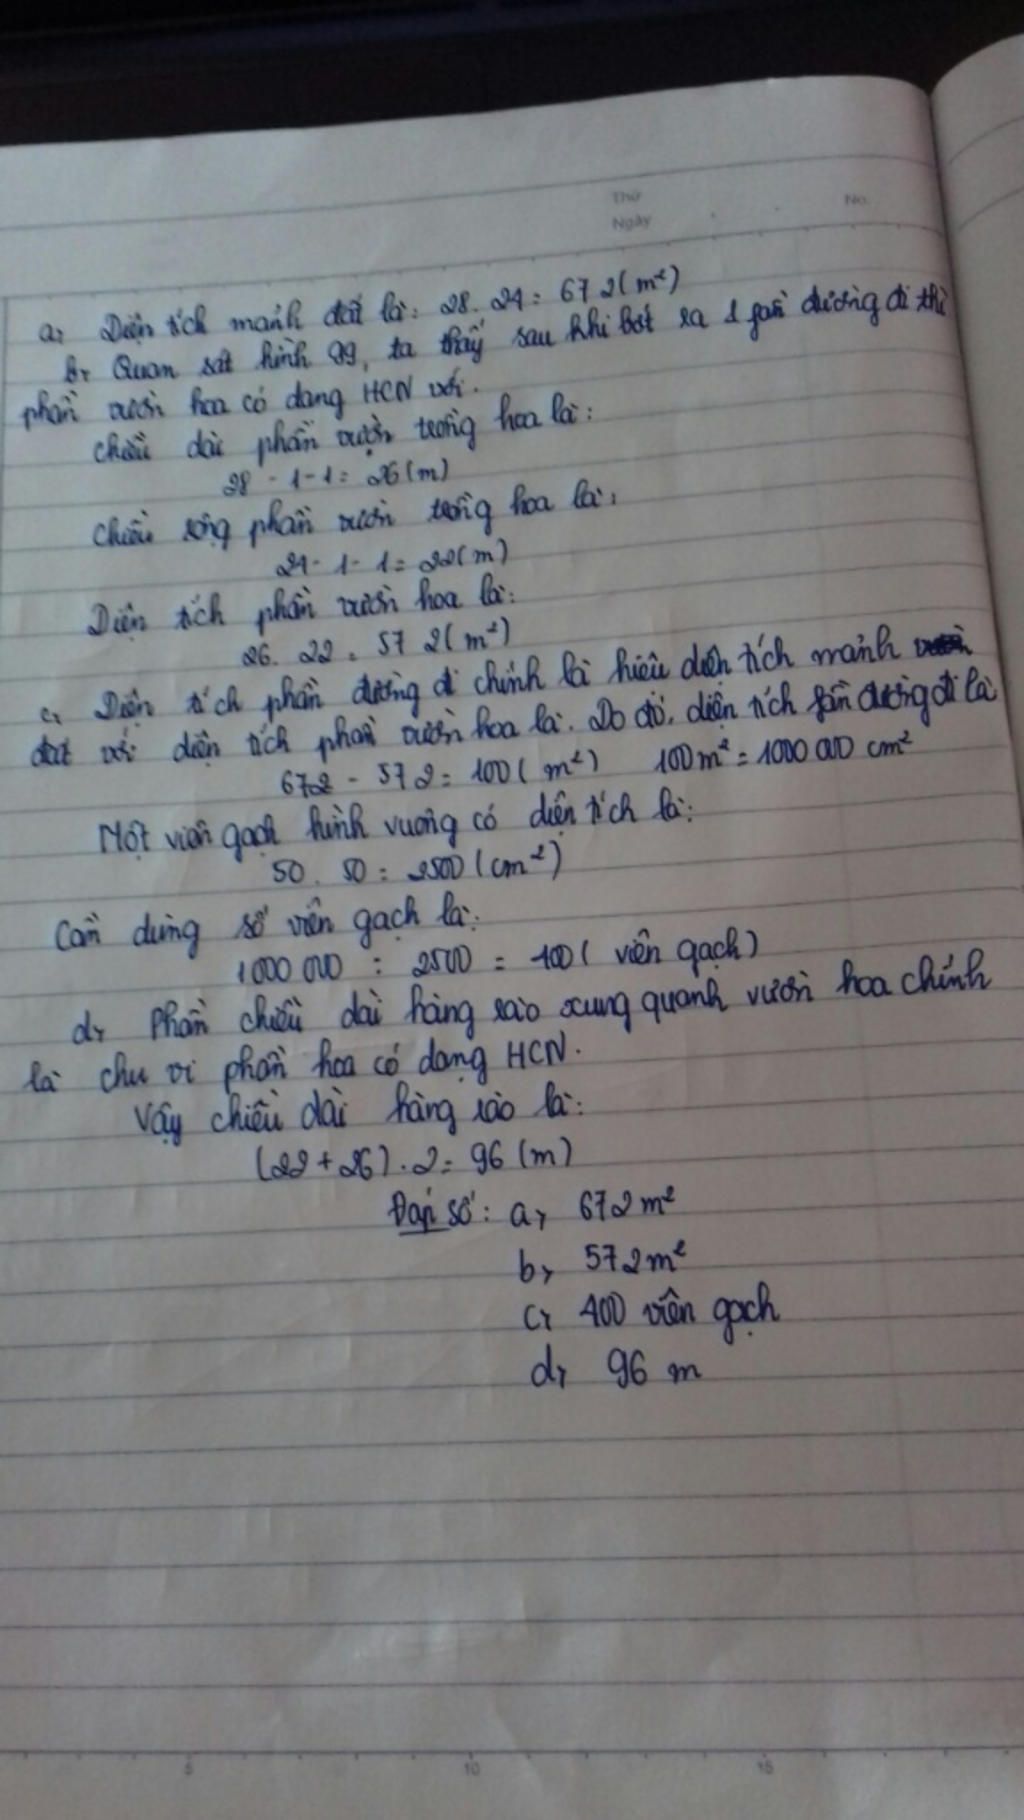 Thứ
Ngày
No.
a, Diện tích mảnh đất là: 28. 24 = 672 (m²)
b, Quan sát hình 99, ta thấy sau khi bớt ra 1 phần đường đi thì
phần vườn hoa có dạng HCN với.
Chiều dài phần vườn trồng hoa là:
28 - 1 - 1 = 26 (m)
Chiều rộng phần vườn trồng hoa là:
24 - 1 - 1 = 22 (m)
Diện tích phần vườn hoa là:
26. 22 = 572 (m²)
c, Diện tích phần đường đi chính là hiệu diện tích mảnh
đất với diện tích phần vườn hoa là. Do đó, diện tích phần đường đi là
672 - 572 = 100 (m²) 100m² = 1000 000 cm²
Một viên gạch hình vuông có diện tích là:
50. 50 = 2500 (cm²)
Cần dùng số viên gạch là:
1000 000 : 2500 = 400 (viên gạch)
d, Phần chiều dài hàng rào xung quanh vườn hoa chính
là chu vi phần hoa có dạng HCN.
Vậy chiều dài hàng rào là:
(22 + 26) . 2 = 96 (m)
Đáp số: a, 672 m²
b, 572 m²
c, 400 viên gạch
d, 96 m
5 10 15